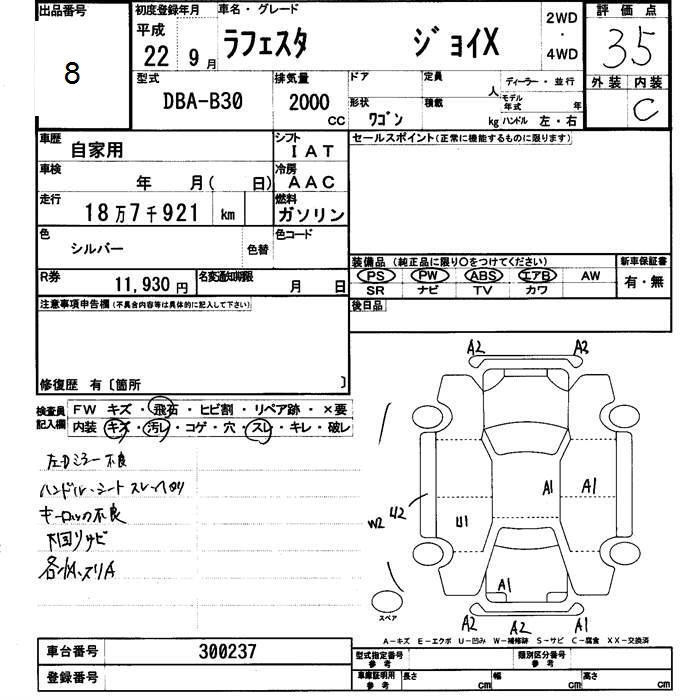 出品番号
8
初度登録年月
平成
22 9月
車名・グレード
ラフェスタ ジョイX
2WD
・
4WD
評価点
3.5
外装 内装
C
型式
DBA-B30
排気量
2000
CC
ドア
定員
人
ディーラー・並行
モデル年式 年
形状
ワゴン
積載
kg
ハンドル 左・右
車歴
自家用
シフト
IAT
車検
年 月( 日)
冷房
AAC
走行
18万7千921 km
燃料
ガソリン
色
シルバー
色替
色コード
R券
11,930円
名変通知期限
月 日
セールスポイント(正常に機能するものに限ります)
装備品(純正品に限り○をつけてください)
PS PW ABS エアB AW
SR ナビ TV カワ
新車保証書
有・無
後日品
注意事項申告欄(不具合内容等は具体的に記入して下さい)
修復歴 有〔箇所 〕
検査員記入欄
FW キズ・飛石・ヒビ割・リペア跡・×要
内装 キズ・汚レ・コゲ・穴・スレ・キレ・破レ
左Dミラー不良
ハンドル・シートスレ・ヘタリ
キーロック不良
下回りサビ
A2 A3
A1 A1
U1
W2 U2
A1
A2 A2 A1
スペア
A-キズ E-エクボ U-凹み W-補修跡 S-サビ C-腐食 XX-交換済
車台番号
300237
登録番号
型式指定番号
参考
類別区分番号
参考
車庫証明用
参考
長さ cm
幅 cm
高さ cm